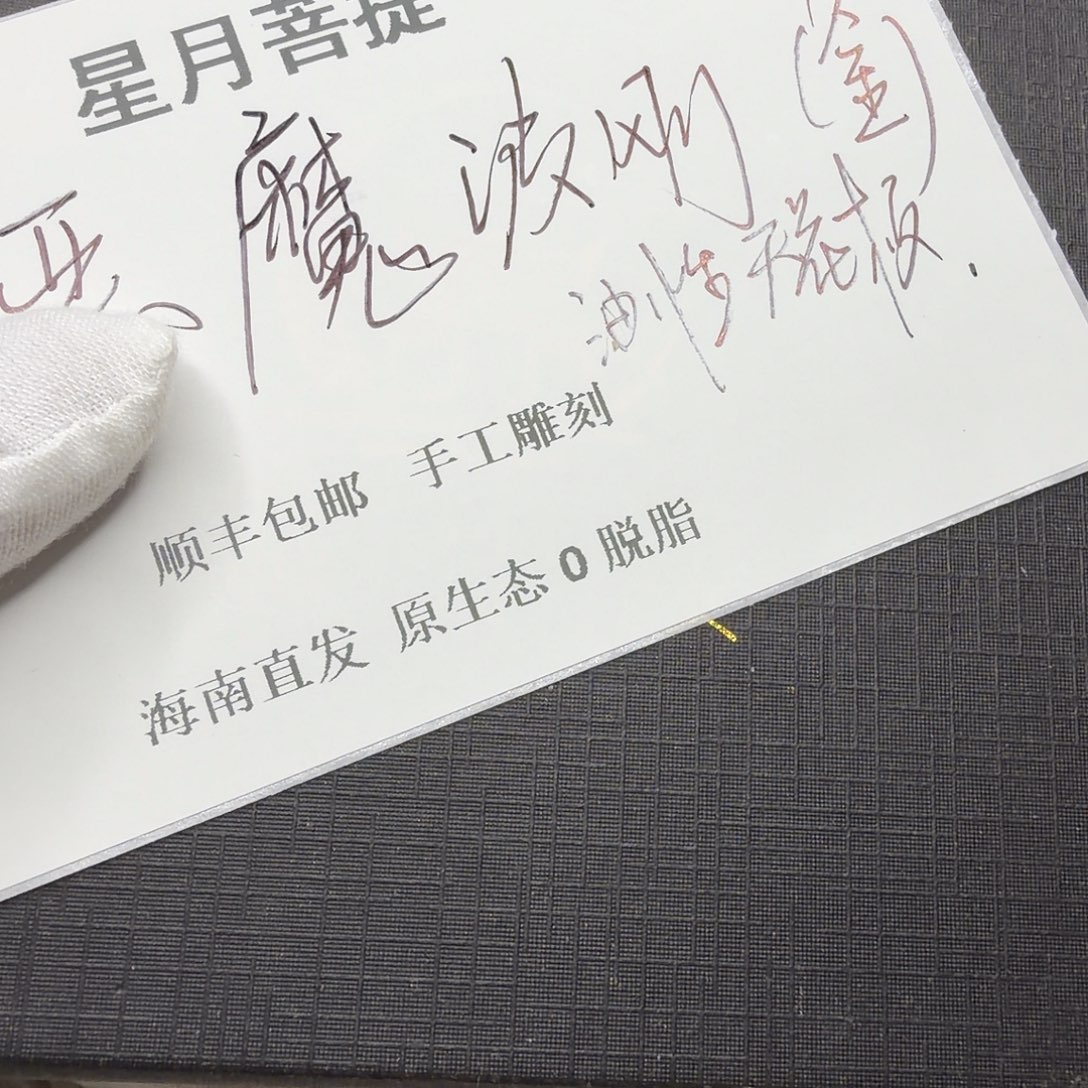 星月菩提
恶魔波刚(金)
油性天花板.
顺丰包邮 手工雕刻
海南直发 原生态0脱脂